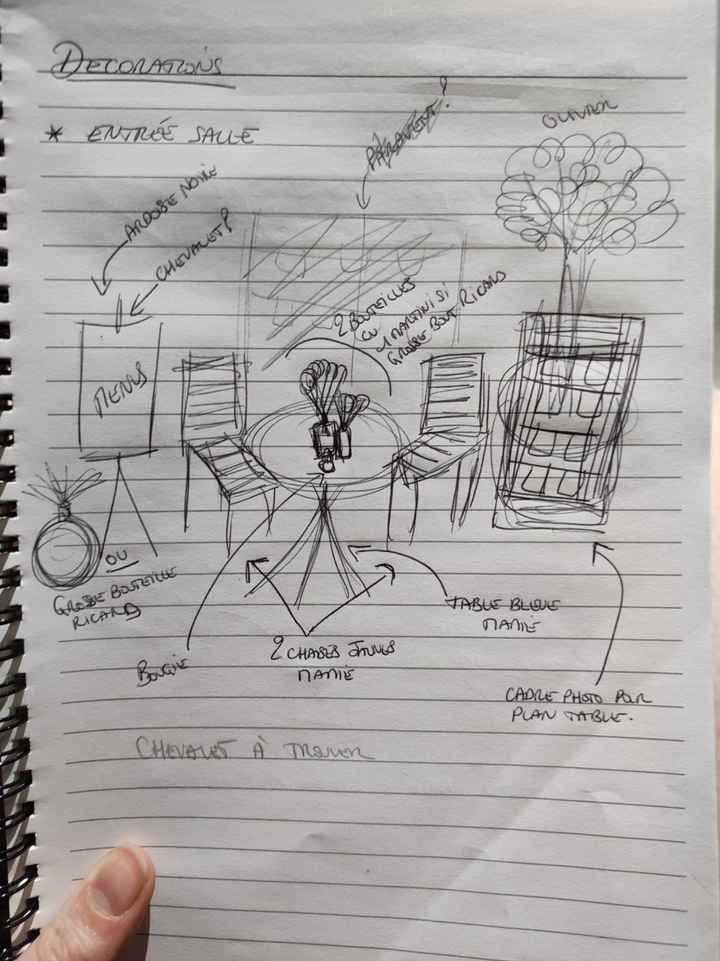 DECORATIONS
* ENTRÉE SALLE
OLIVIER
ARDOISE NOIRE
CHEVALET?
2 BOUTEILLES
OU 1 MARTINI SI
GROSSE BOUT RICARD
MENUS
OU
GROSSE BOUTEILLE
RICARD
BOUGIE
2 CHAISES JAUNES
MAMIE
TABLE BLEUE
MAMIE
CADRE PHOTO POUR
PLAN TABLE.
CHEVALET À TROUVER